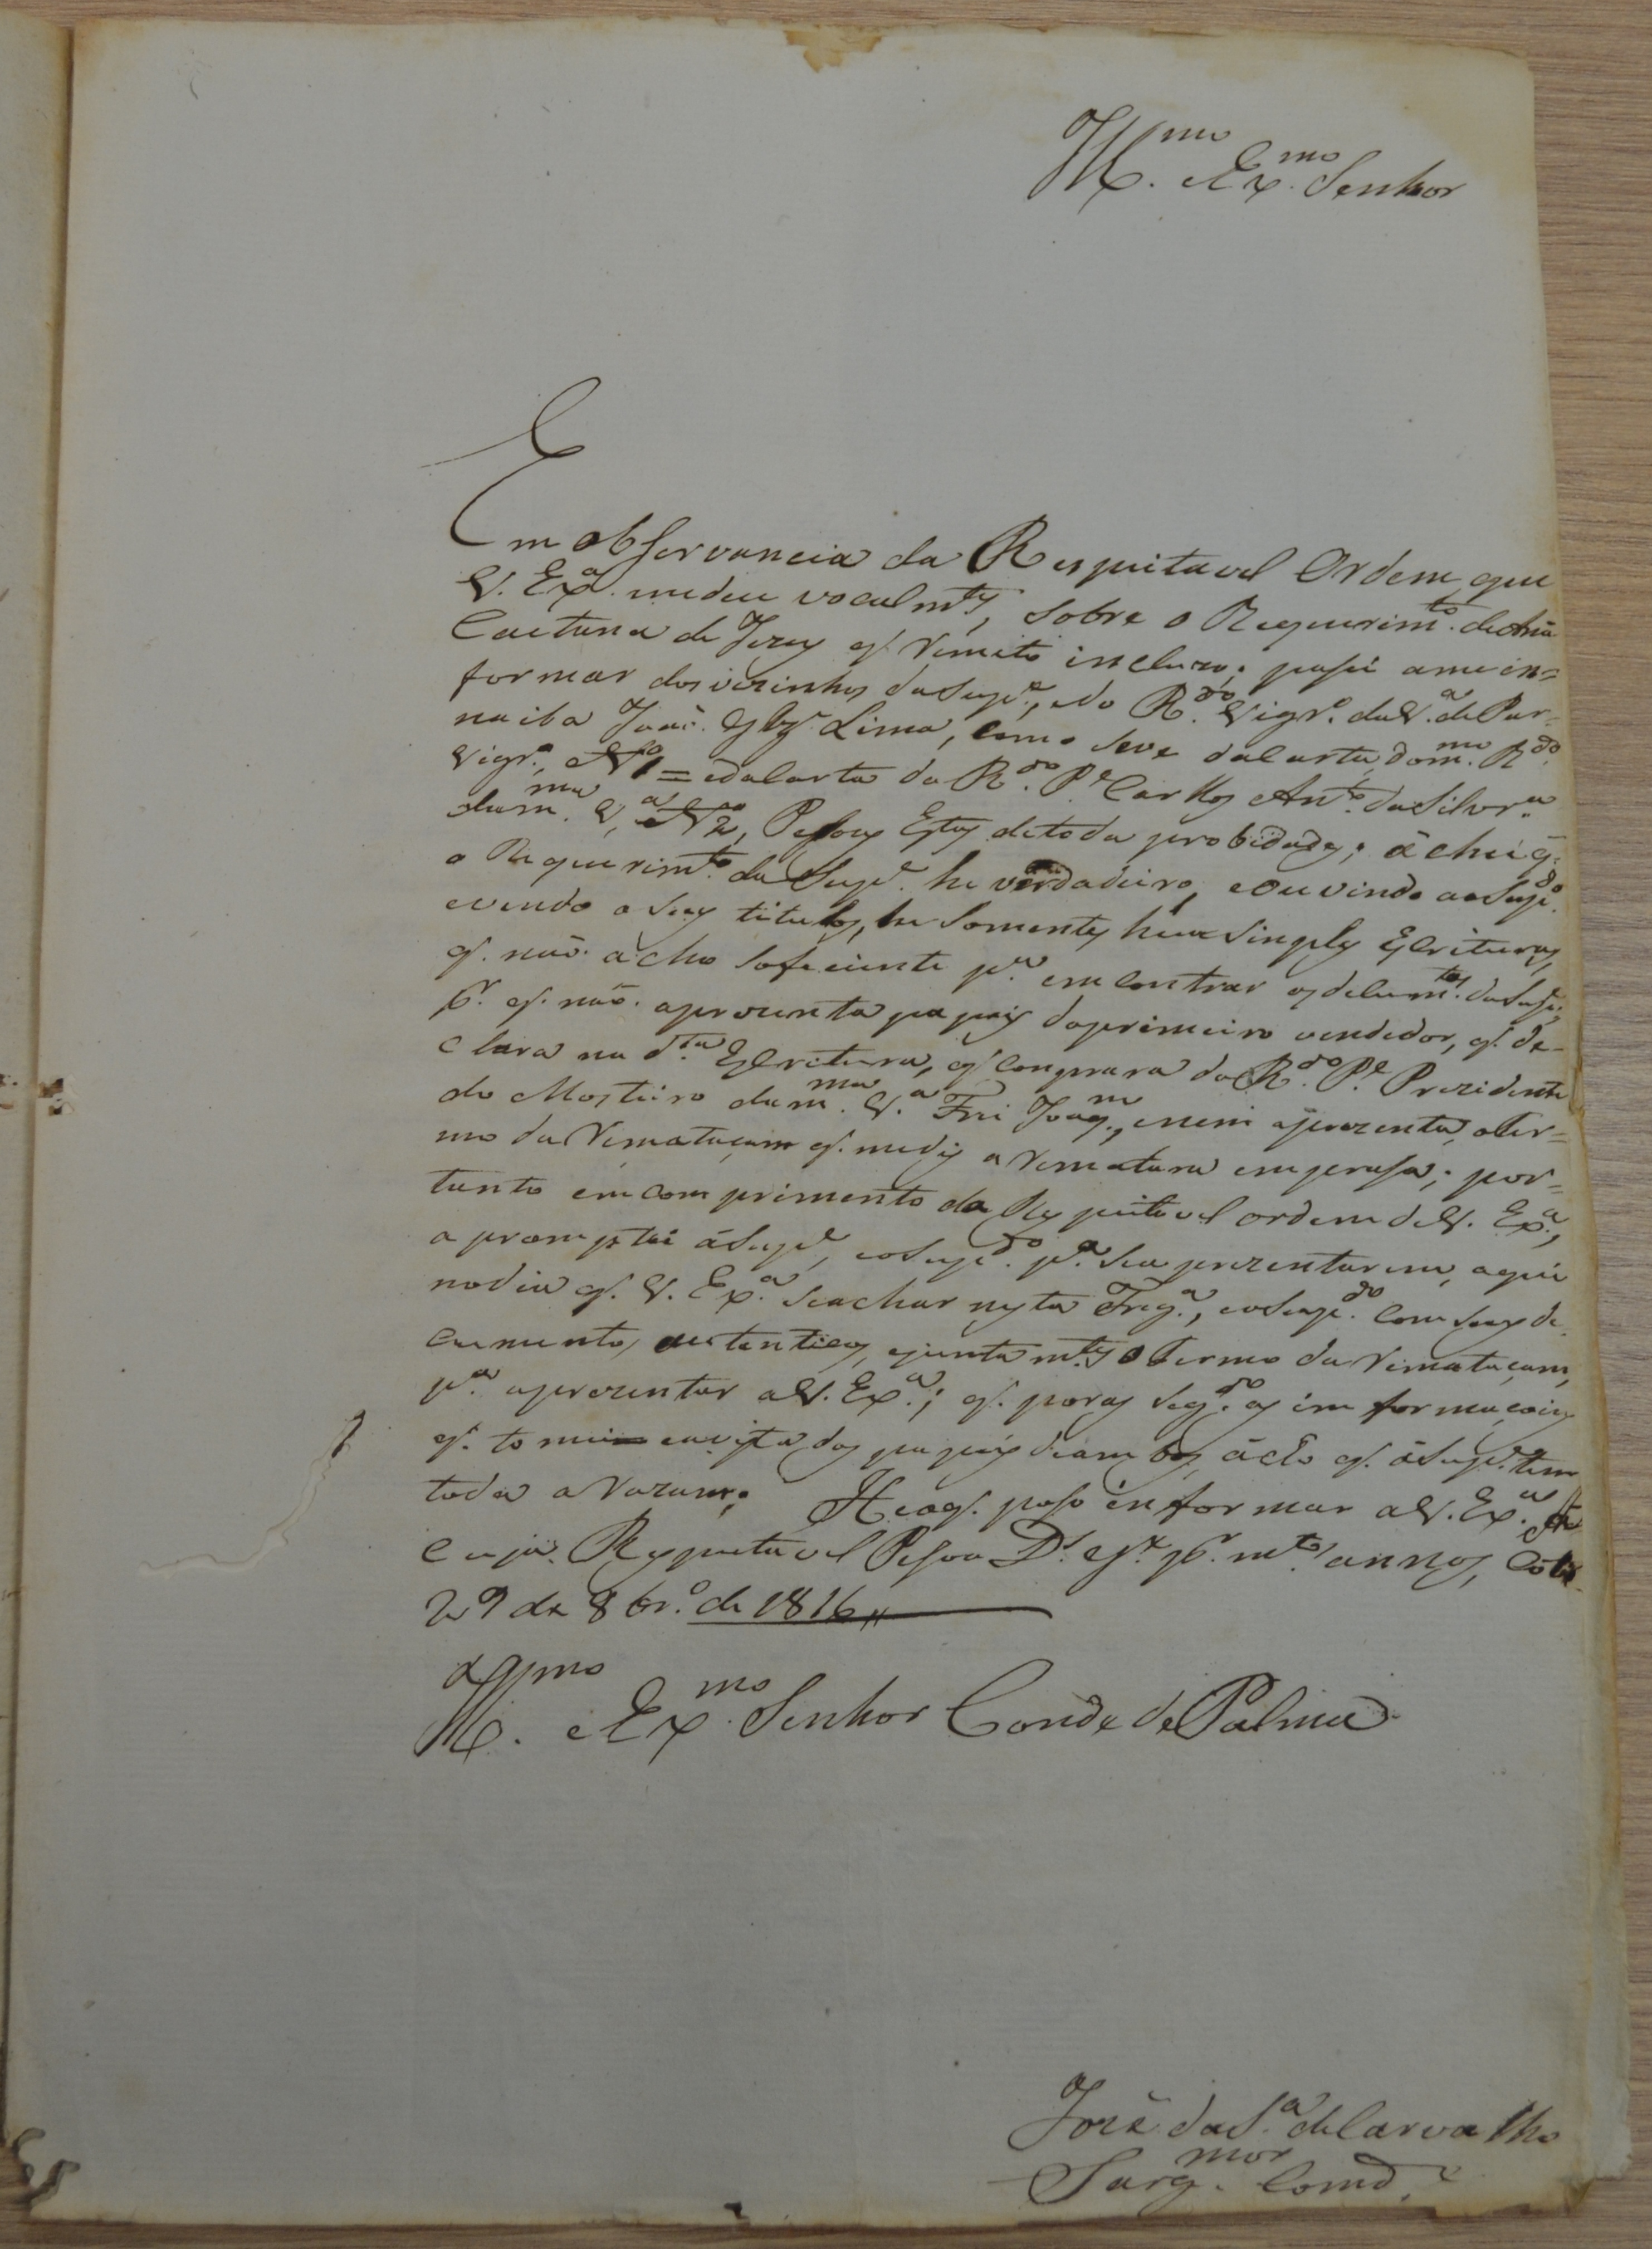 Ill.mo e Ex.mo Senhor
Em observancia da Respeitavel Ordem que
V. Ex.a medeu vocalm.te, sobre o Requerim.to de Anna
Caetana de Jezus q' Remeto incluzo; pasei ame in=
formar dos vizinhos da Sup.e, e do R.do Vigr.o da V.a de Par-
naiba João Lima, como seve da Carta do m.mo R.do
Vigr.o, N.o 1 = e da Carta do R.do P.e Carllos Ant.o da Silvr.a
da m.ma V.a N.o 2, Pesoas Estas de toda probidade; achei q'
o Requerim.to da Sup.e he verdadeiro, e ouvindo ao Sup.do
evendo o seus titulos, he somentes hua simples Escrituras,
q' não acho soficiente p.a em contrar os docum.tos da Sup.e,
p.r q' não aprezenta papeis do primeiro vendedor, q' de-
clara na d.ta Escritura, q' comprara do R.do P.e Prezidente
do Mosteiro da m.ma V.a Frei Joaq.m, enem aprezenta, oter=
mo da Rematacam q' me dis a Rematara em prasa; por=
tanto em comprimento da Respeitavel ordem de V. Ex.a,
a promptei á Sup.e, eo Sup.do p.a sea prezentarem, aqui
no dia q' V. Ex.a seachar nesta Freg.a, eo Sup.do com seus do-
cumentos, autenticos, ejuntam.te o Termo da Rematacam,
p.a aprezentar a V. Ex.a; q' poras seg.do as imformacois
q' tomei eavista dos papeis deambos, acto q' a Sup.e tem
toda a Razam; He oq' poso informar a V. Ex.a
cuja Respeitavel Pesoa D.s g.e p.r m.tos annos, Cotia
29 de 8br.o de 1816
Ill.mo e Ex.mo Senhor Conde de Palma
José da S.a de Carvalho
Sarg.mor Comd.e